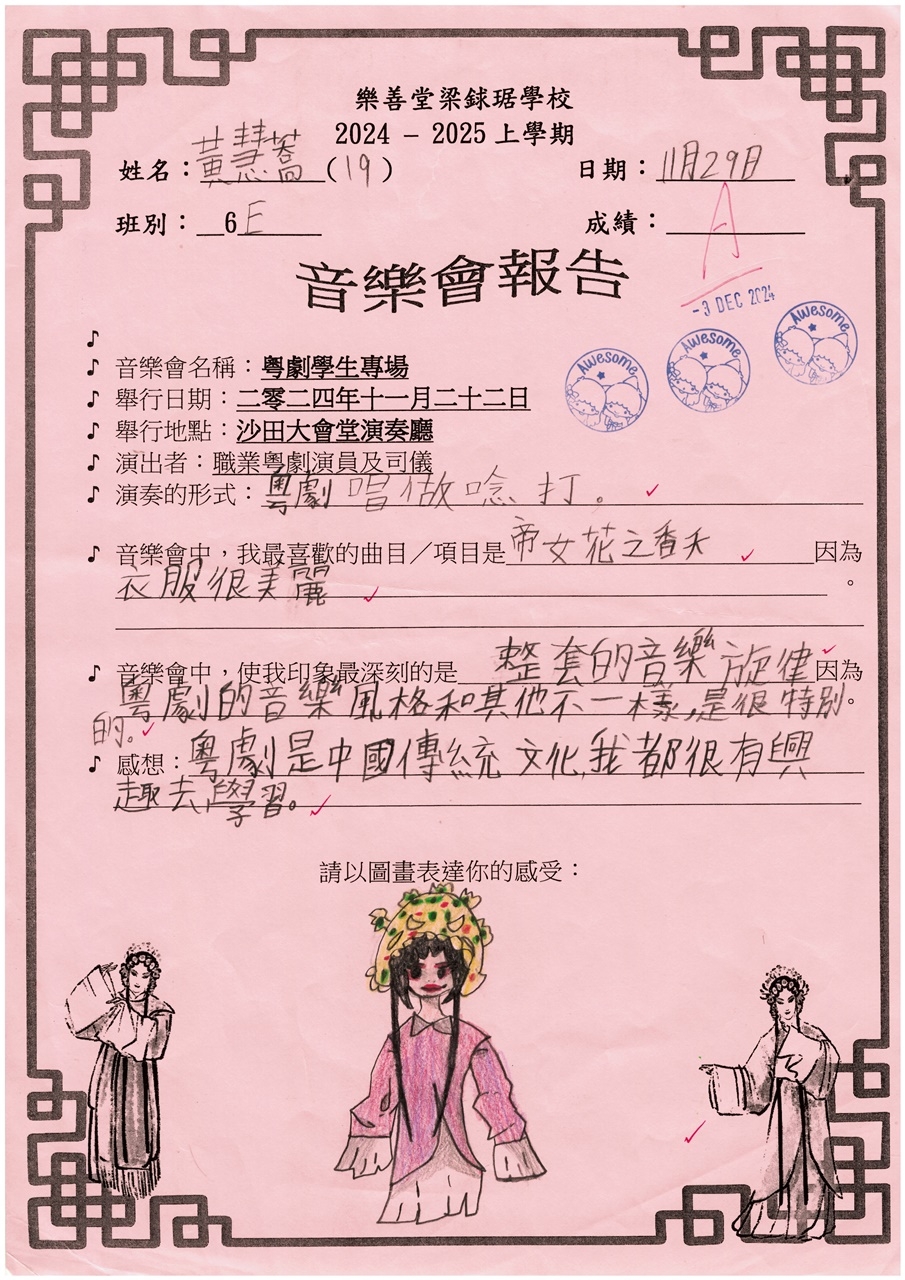 樂善堂梁銶琚學校
2024 – 2025 上學期
姓名：黃慧喬(19) 日期：11月29日
班別：6E 成績：A
-3 DEC 2024
音樂會報告
Awesome Awesome Awesome
♪
♪ 音樂會名稱：粵劇學生專場
♪ 舉行日期：二零二四年十一月二十二日
♪ 舉行地點：沙田大會堂演奏廳
♪ 演出者：職業粵劇演員及司儀
♪ 演奏的形式：粵劇 唱做唸打。
♪ 音樂會中，我最喜歡的曲目／項目是帝女花之香夭因為
衣服很美麗。
♪ 音樂會中，使我印象最深刻的是整套的音樂旋律因為
粵劇的音樂風格和其他不一樣,是很特別。
的。
♪ 感想：粵劇是中國傳統文化,我都很有興
趣去學習。
請以圖畫表達你的感受：